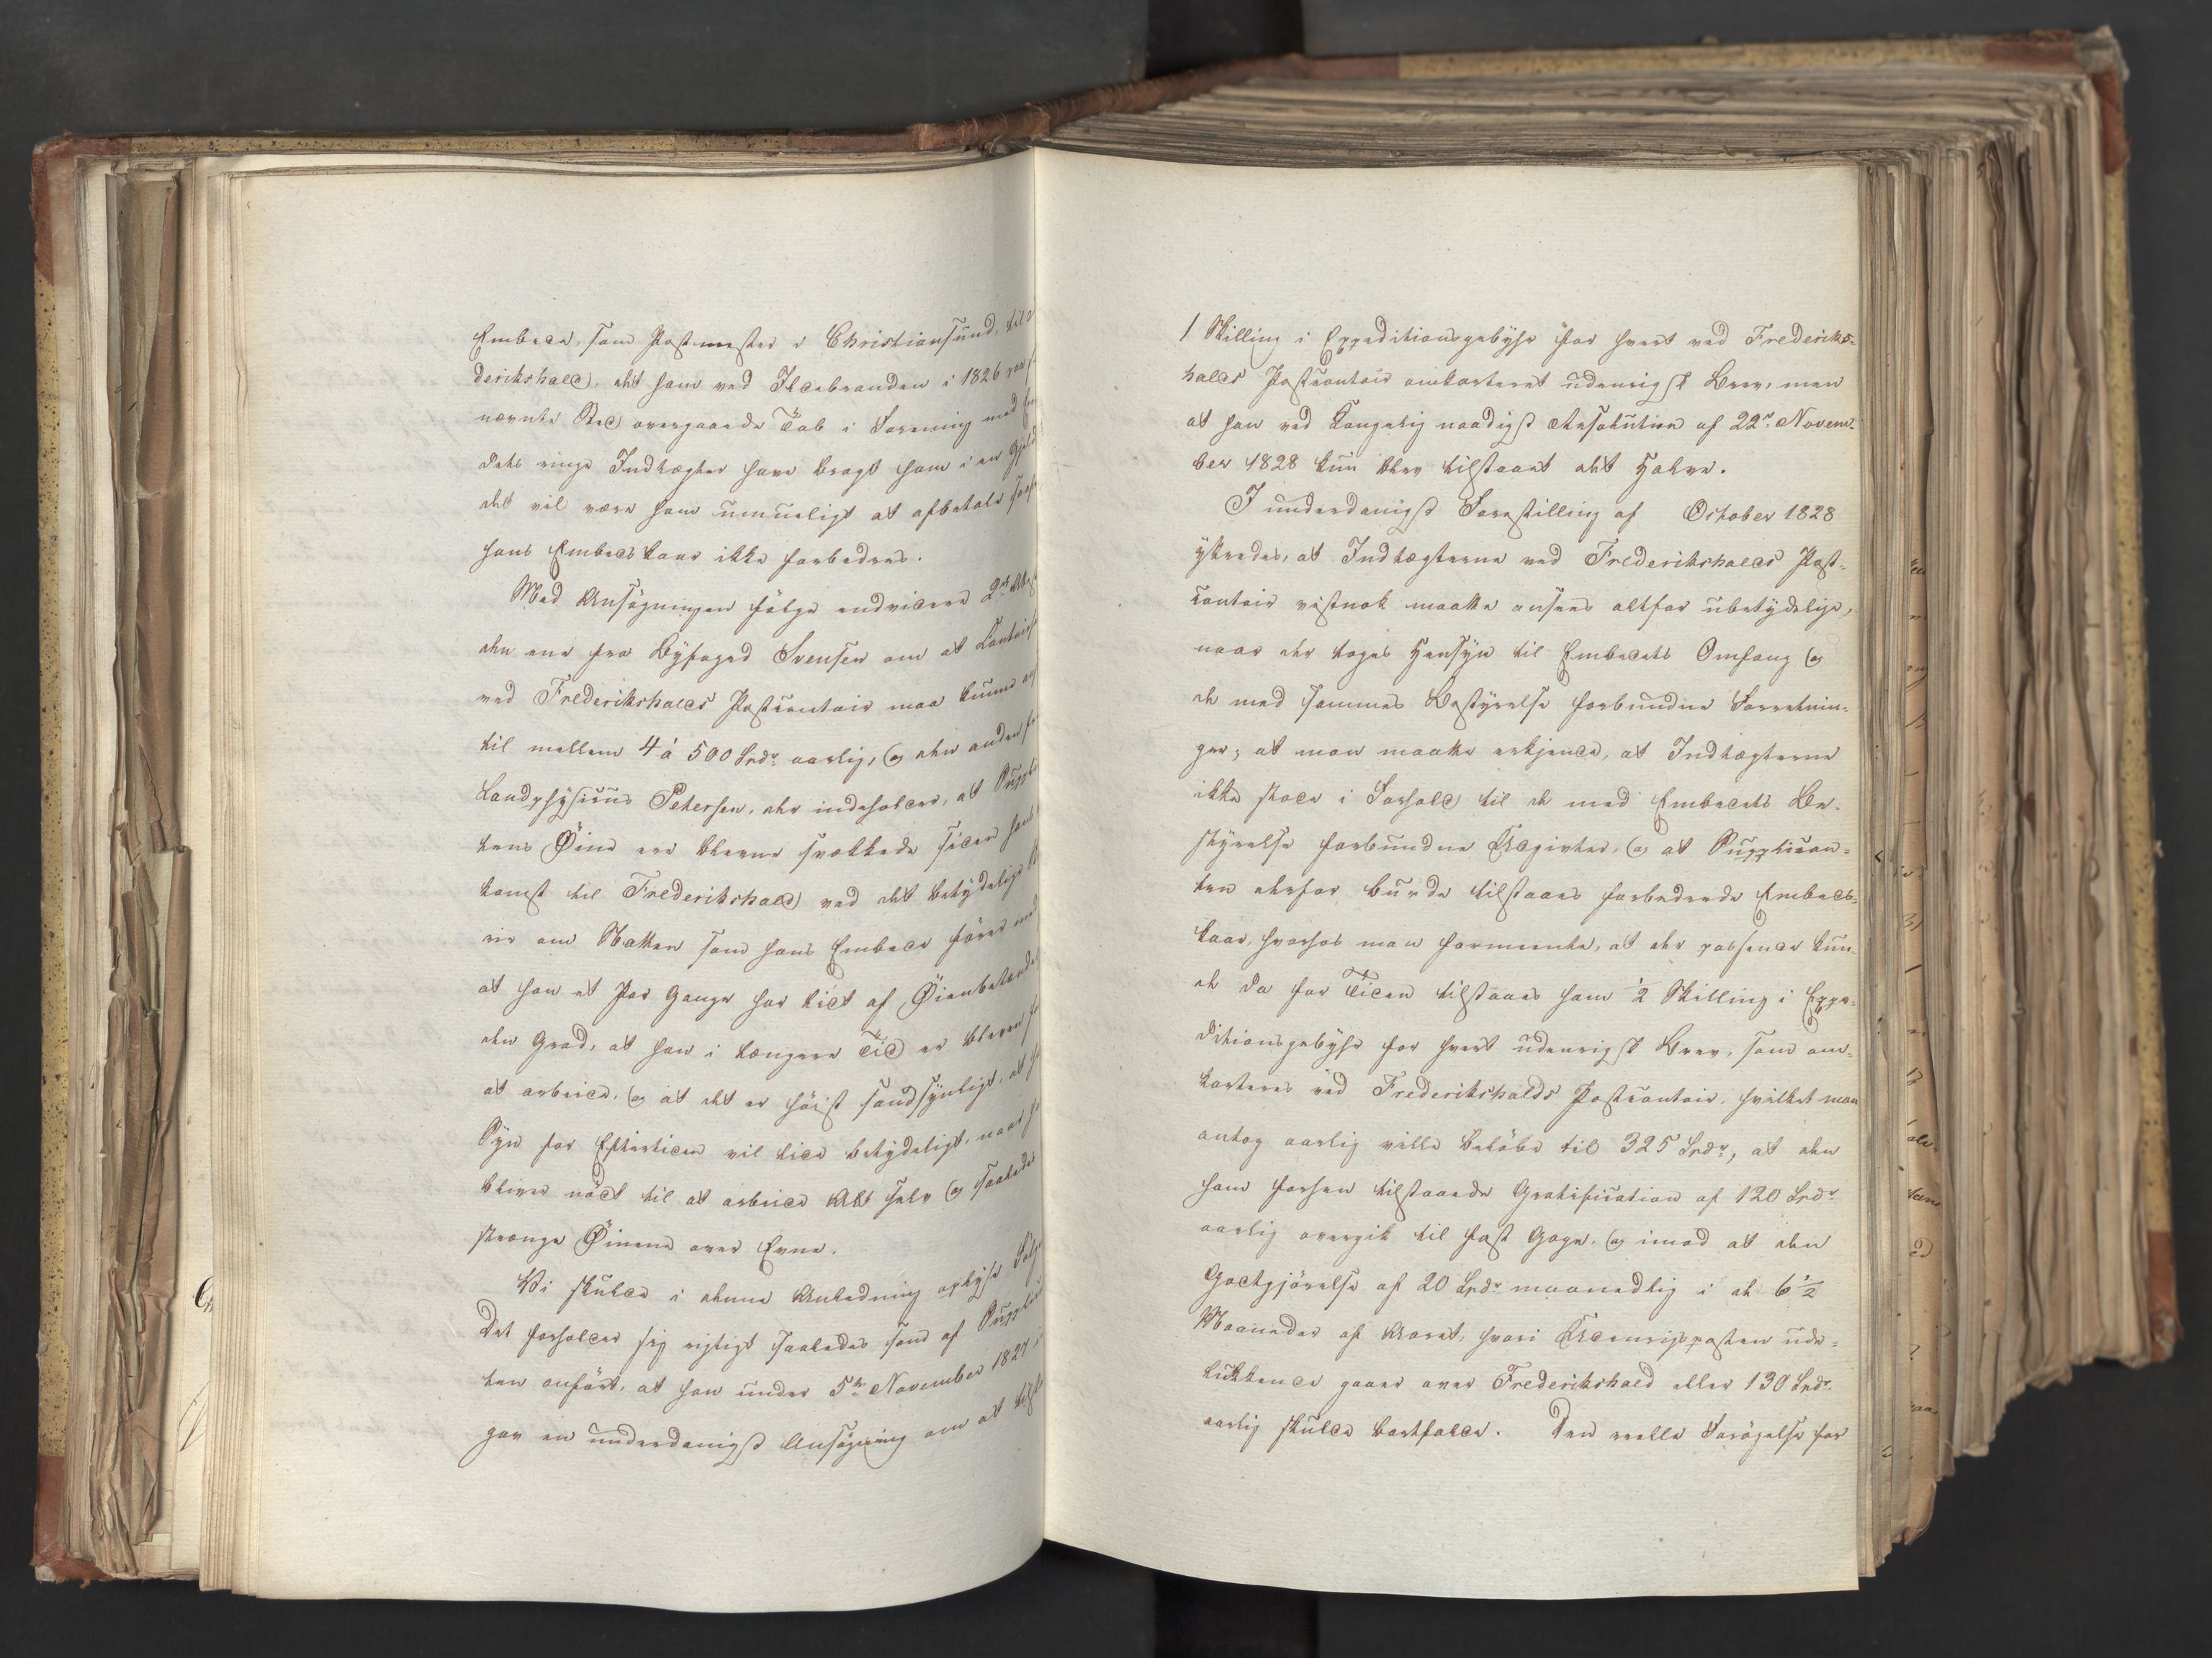 Embede, som Postmester i Christiansund, til
derikshald, det ham ved Ildebranden i 1826 paa
nævnte Sted overgaaede Tab i Forening med
dets ringe Indtægter have bragt ham i en Gjeld
det vil være ham umueligt at afbetale saa
hans Embedskaar ikke forbedres.
Med Ansøgningen følge endvidere 2de
den ene fra Byfoged Svensen om at Contoir
ved Frederikshalds Postcontoir maa kunne
til mellem 4 á 500 Spdr aarlig, og den anden
Landphysicus Petersen, der indeholder, at Suppli
tens Øine ere blevne svækkede siden hans
komst til Frederikshald ved det betydelige
rie om Natten som hans Embede fører med
at han et Par Gange har lidt af Øienbetænde
den Grad, at han i længere Tid er bleven
at arbeide, og at det er høist sandsynligt, at
Syn for Eftertiden vil lide betydeligt, naar
bliver nødt til at arbeide Alt selv og saaledes
strænge Øinene over Evne.
Vi skulde i denne Anledning oplyse Følge
Det forholder sig rigtigt saaledes som af Supplican
ten anført, at han under 5te November 1827
gav en underdanigst Ansøgning om at
1 Skilling i Expeditionsgebyhr for hvert ved Frederiks-
halds Postcontoir omkarteret udenrigst Brev, men
at han ved Kongelig naadigst Resolution af 22de Novem-
ber 1828 kun blev tilstaaet det Halve.
I underdanigst Forestilling af October 1828
yttredes, at Indtægterne ved Frederikshalds Post-
contoir vistnok maatte ansees altfor ubetydelige,
naar der toges Hensyn til Embedets Omfang og
de med sammes Bestyrelse forbundne Forretnin-
ger; at man maatte erkjende, at Indtægterne
ikke stode i Forhold til de med Embedets Be-
styrelse forbundne Udgivter, og at Supplican-
ten derfor burde tilstaaes forbedrede Embeds-
kaar, hvorhos man formeente, at der passende kun-
de da for Tiden tilstaaes ham ½ Skilling i Expe-
ditionsgebyhr for hvert udenrigst Brev, som om-
karteres ved Frederikshalds Postcontoir, hvilket man
antog aarlig ville beløbe til 325 Spdr, at den
ham forhen tilstaaede Gratification af 120 Spdr
aarlig overgik til fast Gage, og imod at den
Godtgjørelse af 20 Spdr maanedlig i de 6½
Maaneder af Aaret, hvori Udenrigsposten ude-
lukkende gaaer over Frederikshald eller 130 Spdr
aarlig skulde bortfalde. Den reelle Forøgelse for